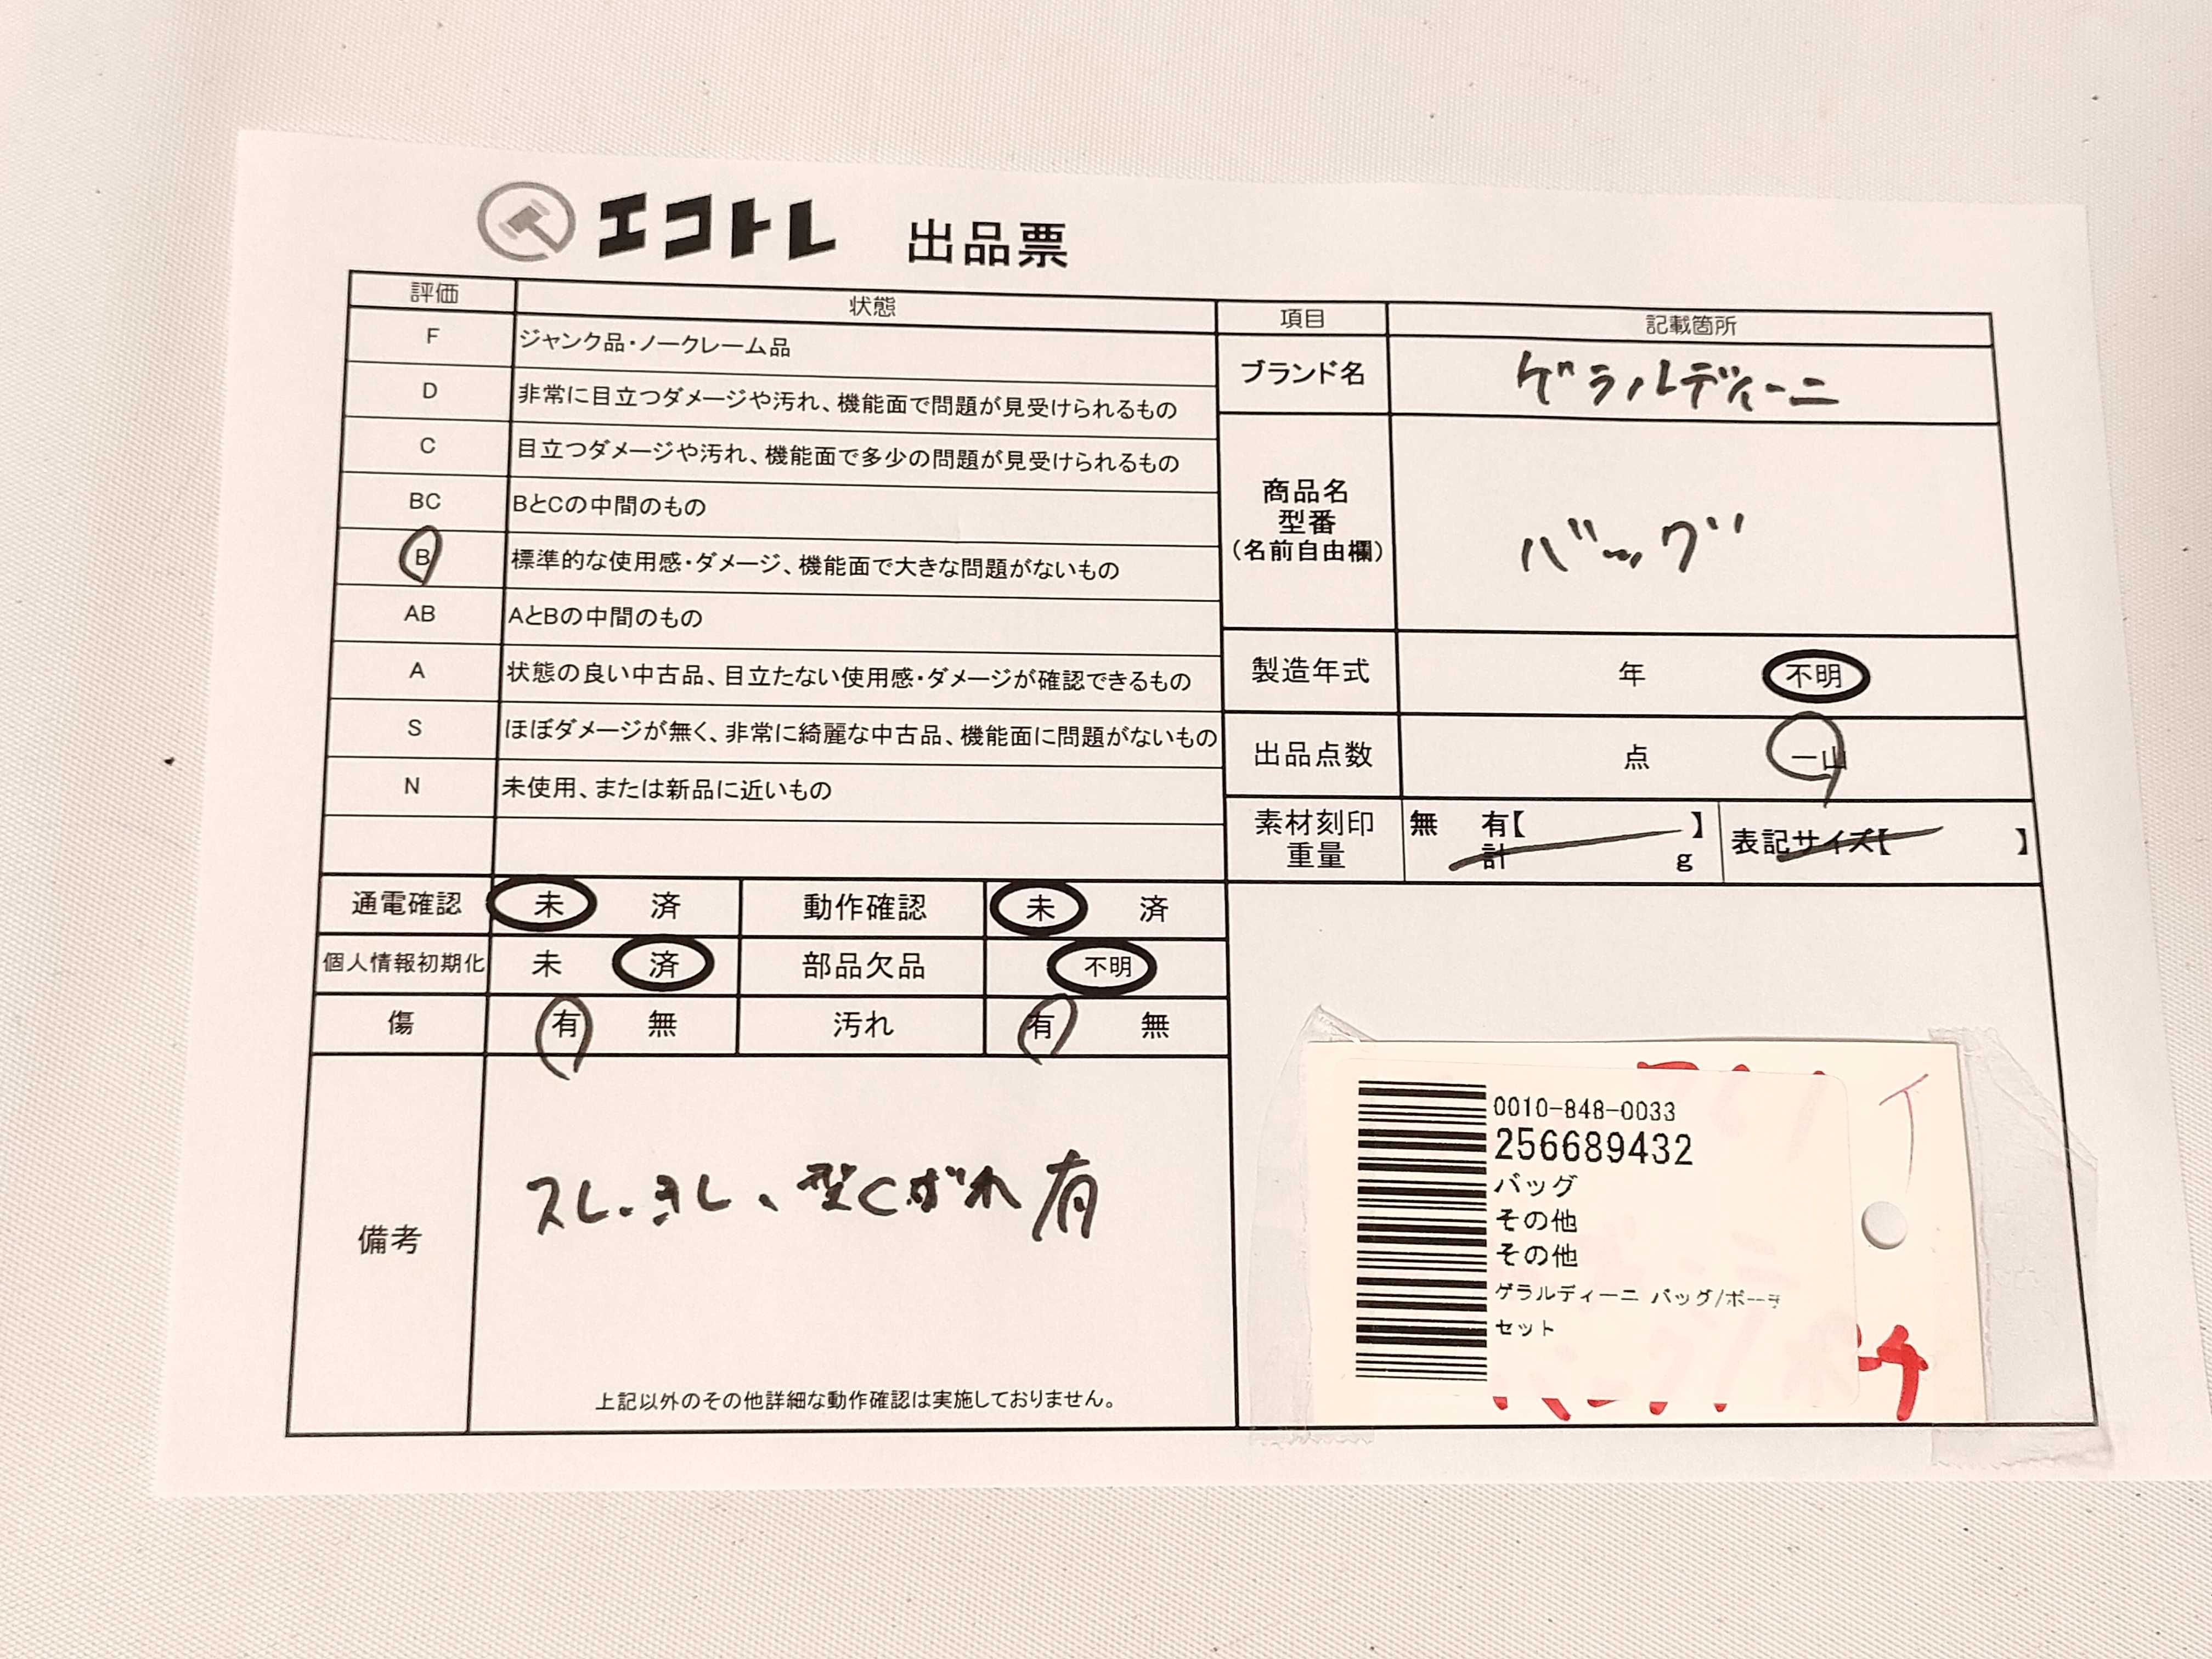 エコトレ 出品票
評価 状態
F ジャンク品・ノークレーム品
D 非常に目立つダメージや汚れ、機能面で問題が見受けられるもの
C 目立つダメージや汚れ、機能面で多少の問題が見受けられるもの
BC BとCの中間のもの
B 標準的な使用感・ダメージ、機能面で大きな問題がないもの
AB AとBの中間のもの
A 状態の良い中古品、目立たない使用感・ダメージが確認できるもの
S ほぼダメージが無く、非常に綺麗な中古品、機能面に問題がないもの
N 未使用、または新品に近いもの
通電確認 未 済 動作確認 未 済
個人情報初期化 未 済 部品欠品 不明
傷 有 無 汚れ 有 無
備考
スレ、キレ、型くずれ有
上記以外のその他詳細な動作確認は実施しておりません。
項目 記載箇所
ブランド名 ゲラルディーニ
商品名
型番
(名前自由欄)
バッグ
製造年式 年 不明
出品点数 点 一山
素材刻印 無 有【 】
重量 計 g
表記サイズ【 】
0010-848-0033
256689432
バッグ
その他
その他
ゲラルディーニ バッグ/ポーチ
セット